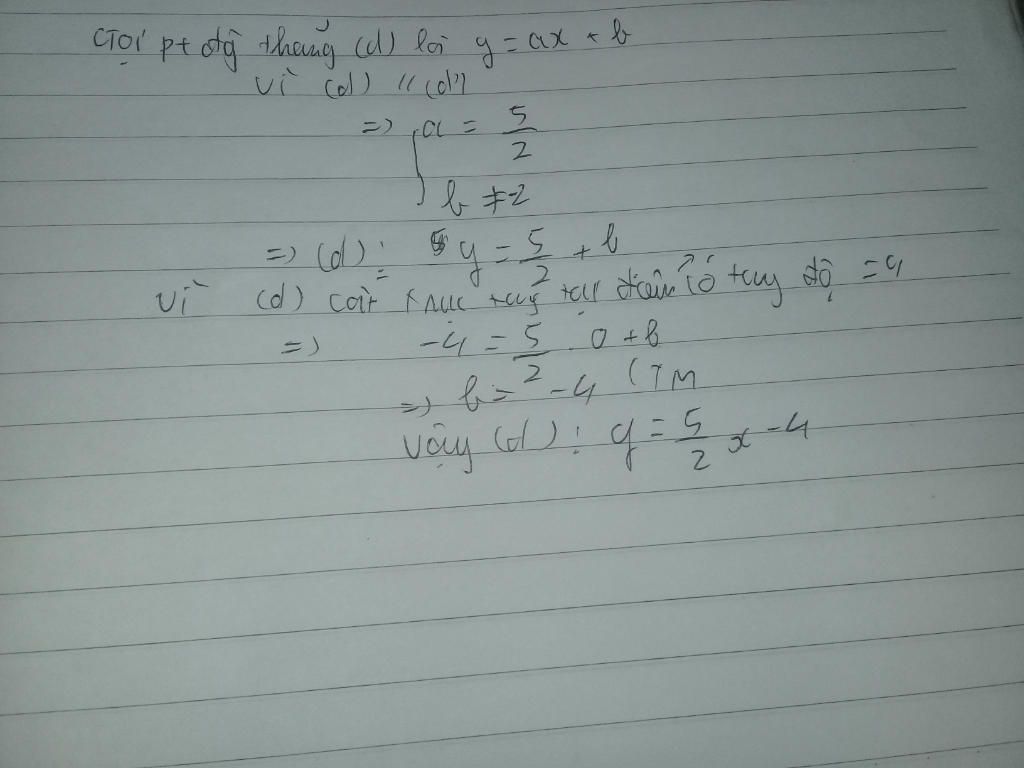 Gọi pt đg thẳng (d) là y = ax + b
Vì (d) // (d')
=> { a = 5/2
b ≠ -2
=> (d): y = 5/2 + b
Vì (d) cắt trục tung tại điểm có tung độ = -4
=> -4 = 5/2 . 0 + b
=> b = -4 (TM
Vậy (d): y = 5/2 x - 4